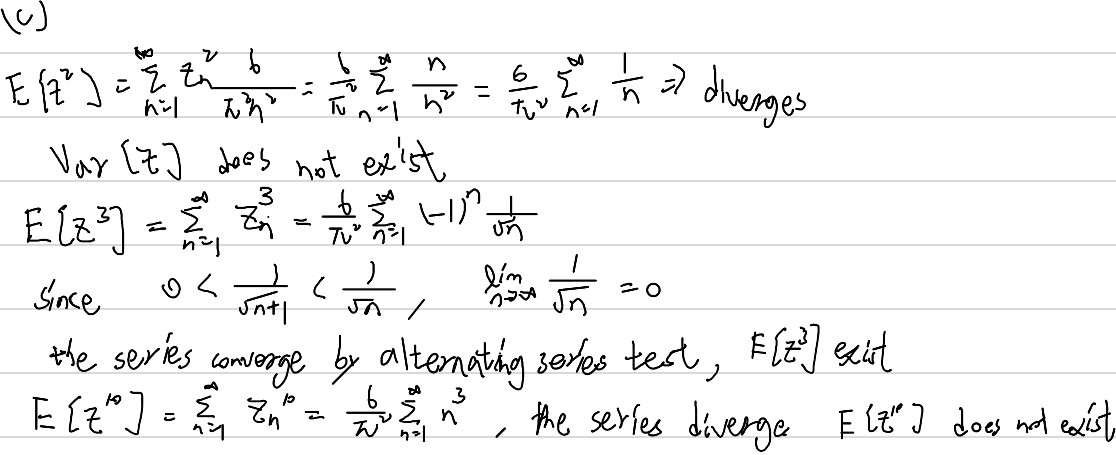 (c)
E[z²] = ∑_{n=1}^{∞} z_n² 6/(π²n²) = 6/π² ∑_{n=1}^{∞} n/n² = 6/π² ∑_{n=1}^{∞} 1/n ⇒ diverges
Var[z] does not exist
E[z³] = ∑_{n=1}^{∞} z_n³ = 6/π² ∑_{n=1}^{∞} (-1)ⁿ 1/√n
since 0 < 1/√(n+1) < 1/√n, lim_{n→∞} 1/√n = 0
the series converge by alternating series test, E[z³] exist
E[z¹⁰] = ∑_{n=1}^{∞} z_n¹⁰ = 6/π² ∑_{n=1}^{∞} n³, the series diverge E[z¹⁰] does not exist